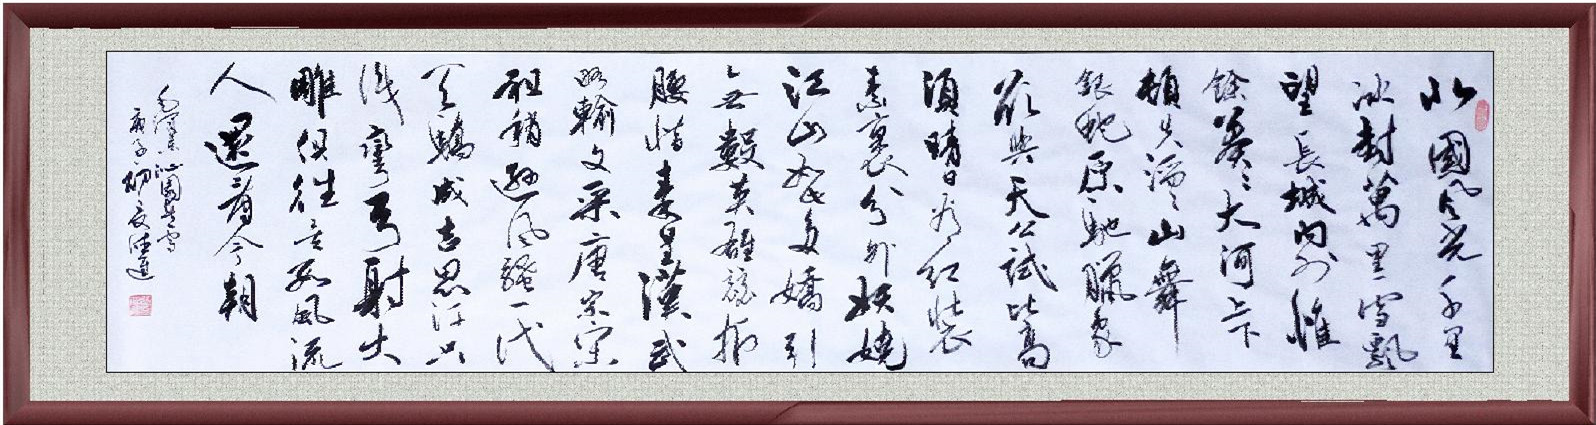 北國风光千里
冰封萬里雪飄
望長城内外惟
餘莽々大河上下
頓失滔々山舞
銀蛇原馳臘象
欲與天公試比高
須晴日看紅裝
素裹分外妖嬈
江山如此多嬌引
無數英雄競折
腰惜秦皇漢武
略輸文采唐宗宋
祖稍遜风騷一代
天驕成吉思汗只
識彎弓射大
雕俱往矣數風流
人還看今朝
毛澤東沁園春雪
庚子